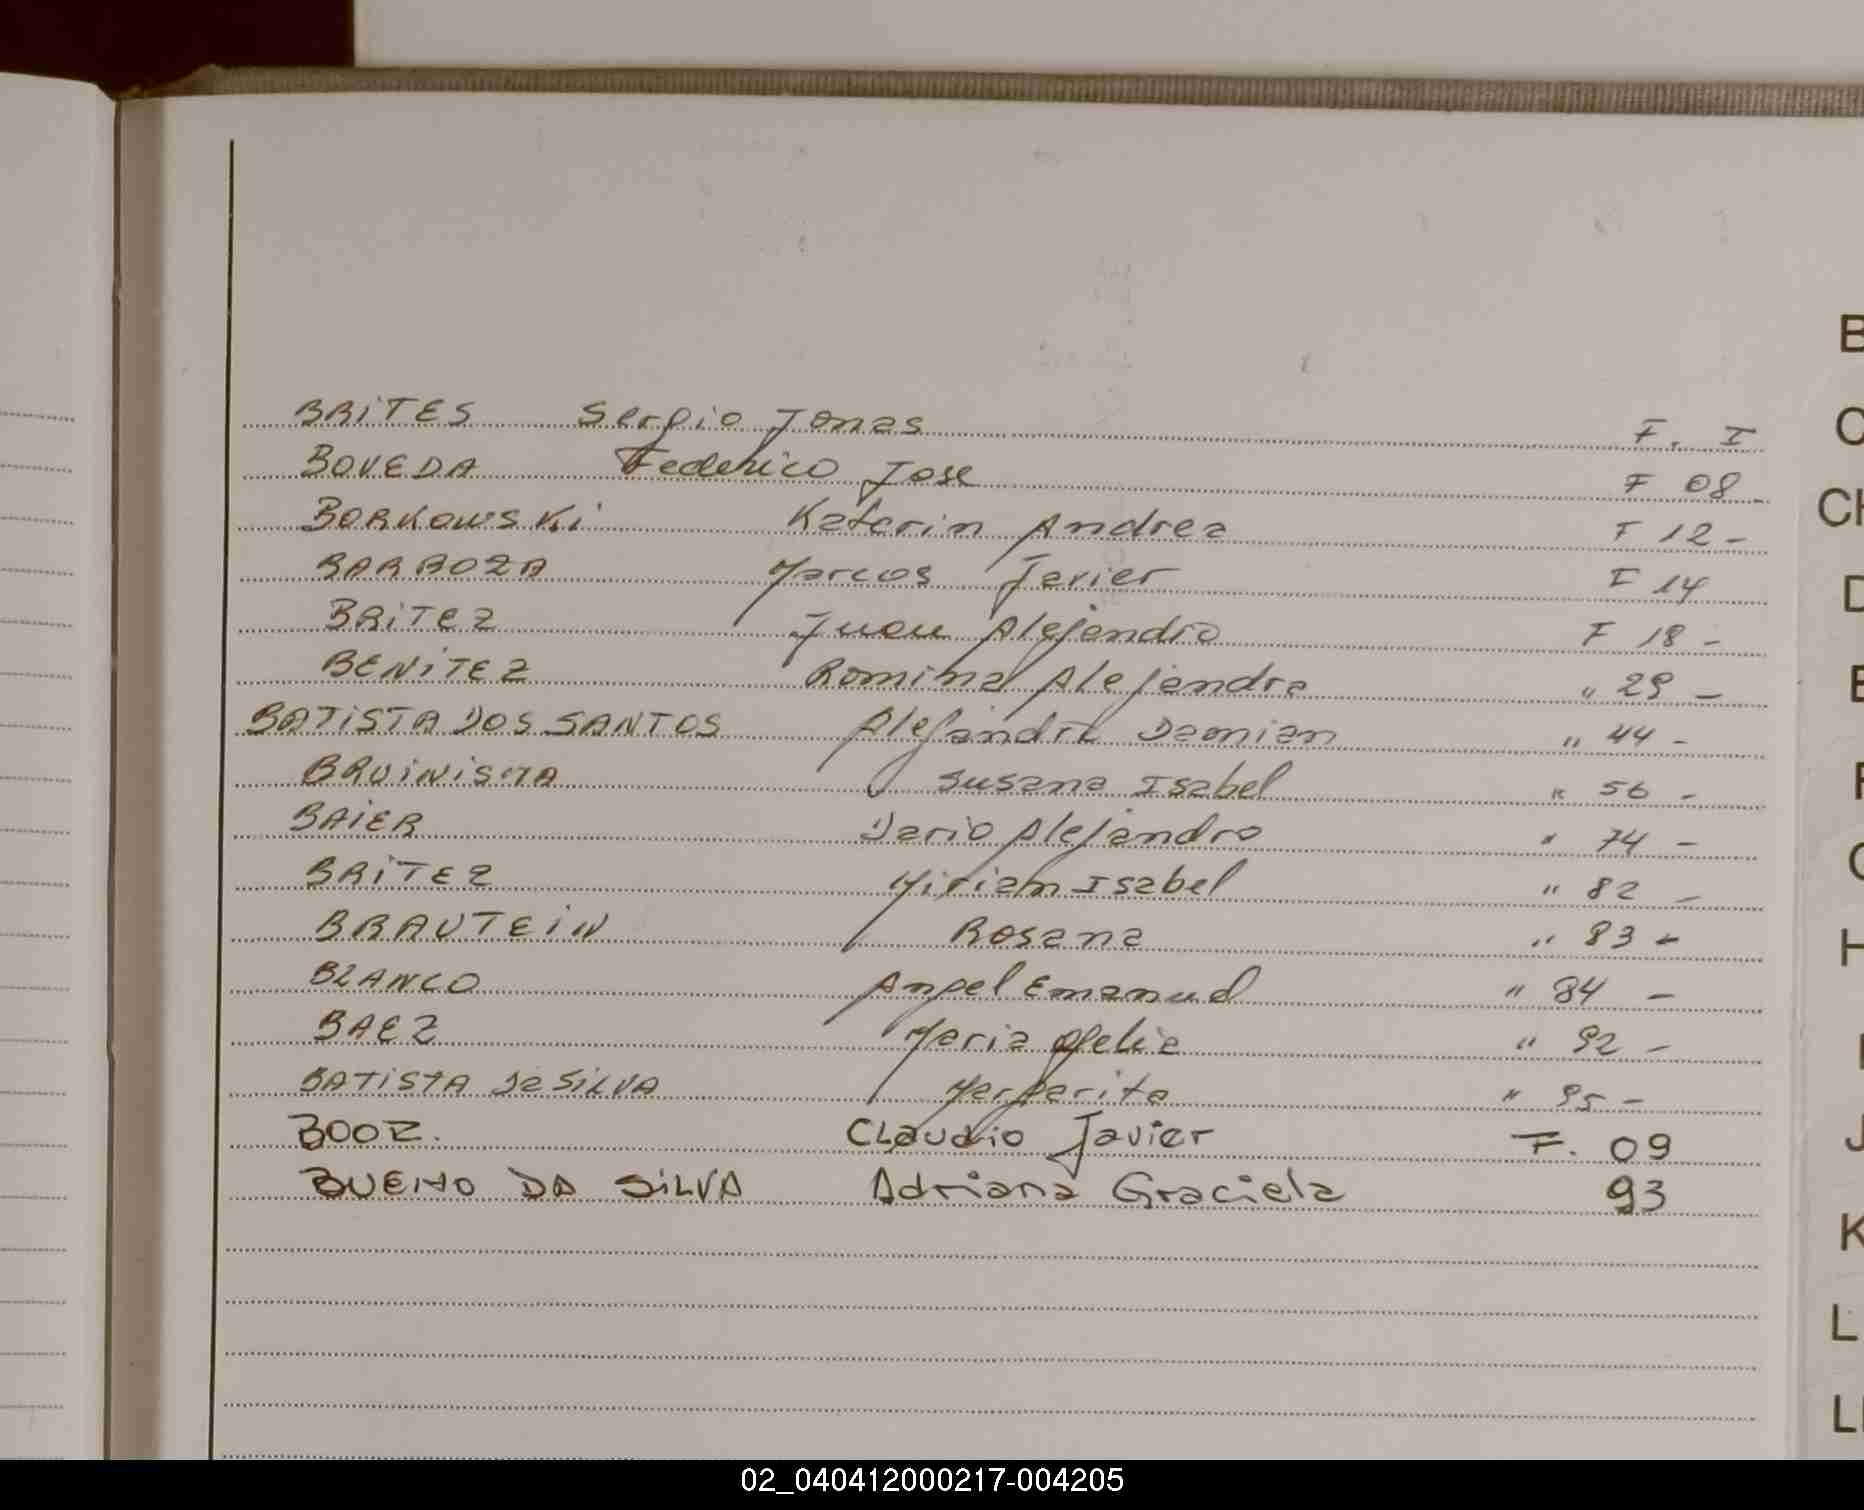 BRITES Sergio Jonas F. I
BOVEDA Federico Jose F 08
BORKOWSKI Katerin Andrea F 12 -
BARBOZA Marcos Javier F 14
BRITEZ Juan Alejandro F 18 -
BENITEZ Romina Alejandra " 29 -
BATISTA DOS SANTOS Alejandro Damian " 44 -
BRUINISMA Susana Isabel " 56 -
BAIER Dario Alejandro " 74 -
BRITEZ Miriam Isabel " 82 -
BRAUTEIN Rosana " 83 -
BLANCO Angel Emanuel " 84 -
BAEZ Maria Ofelia " 92 -
BATISTA De SILVA Margarita " 95 -
BOOZ. Claudio Javier F. 09
BUENO DA SILVA Adriana Graciela 93
B
C
CH
D
E
F
G
H
I
J
K
L
LL
02_040412000217-004205